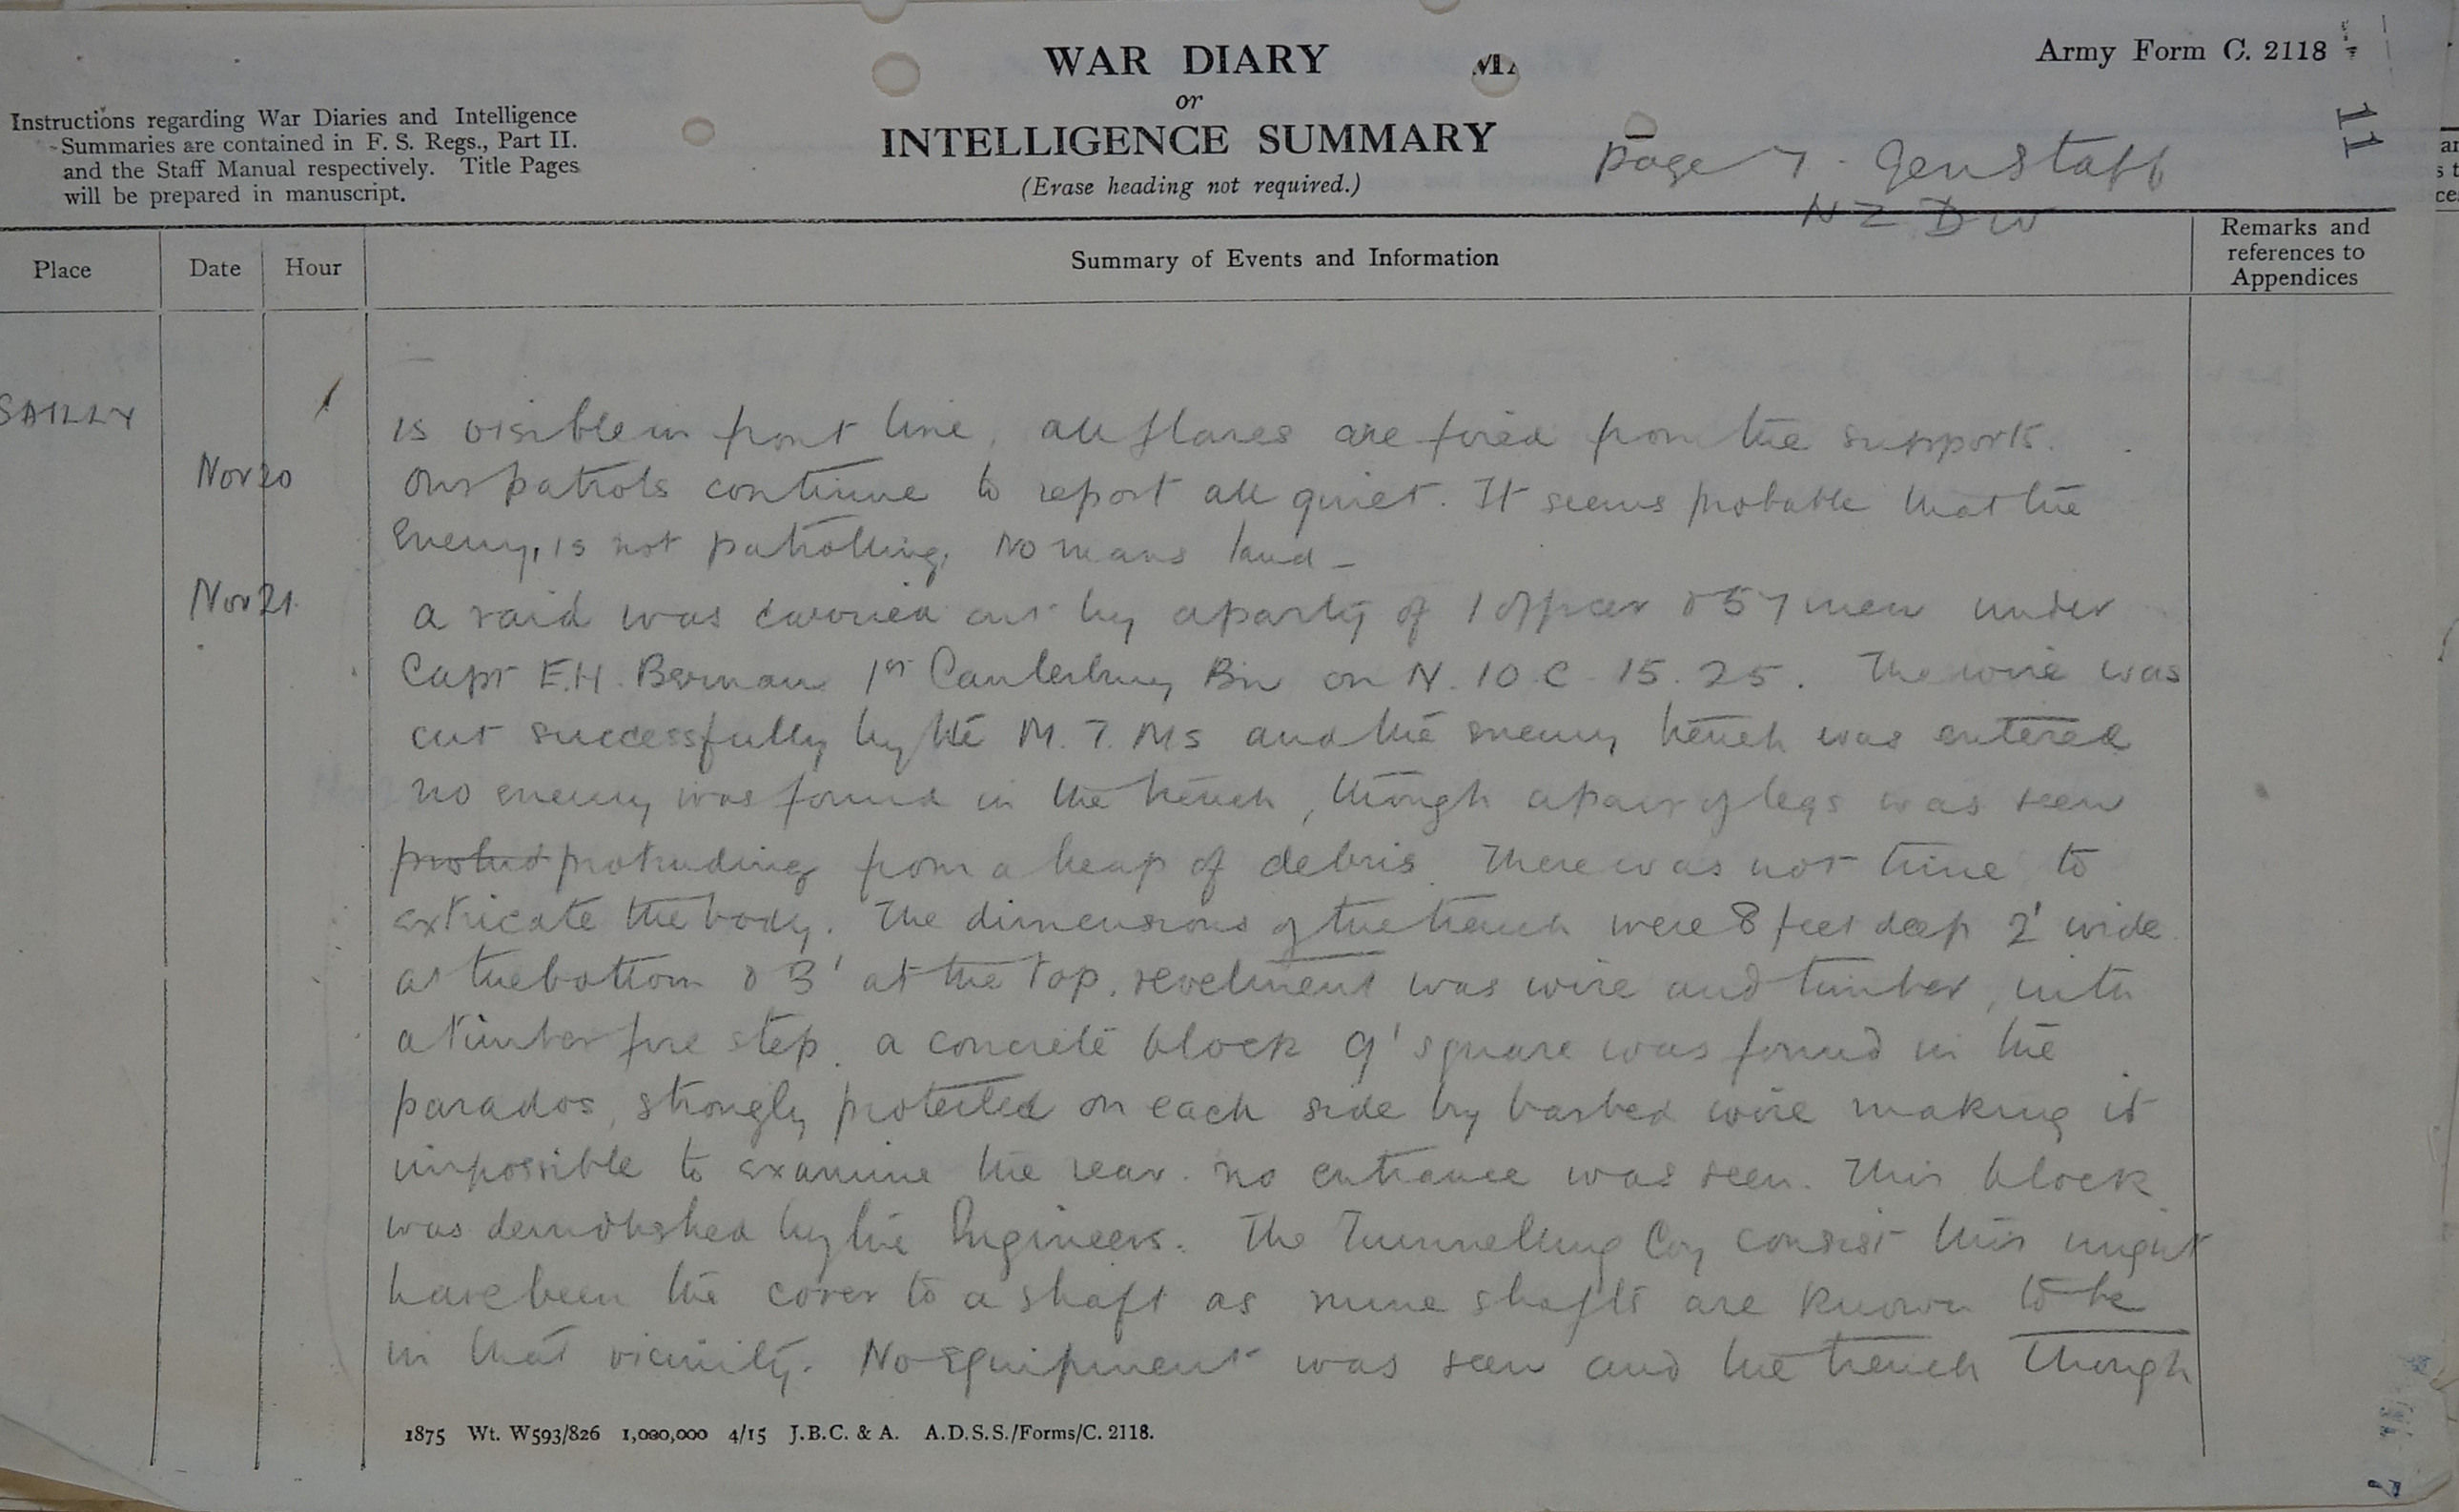 WAR DIARY
or
INTELLIGENCE SUMMARY
(Erase heading not required.)
Army Form C. 2118
11
Instructions regarding War Diaries and Intelligence
Summaries are contained in F. S. Regs., Part II.
and the Staff Manual respectively. Title Pages
will be prepared in manuscript.
page 7. Gen Staff
N Z Div
Place
Date
Hour
Summary of Events and Information
Remarks and
references to
Appendices
SAILLY
is visible in front line, all flares are fired from the supports.
Nov 20
Our patrols continue to report all quiet. It seems probable that the
Enemy, is not patrolling, No mans land -
Nov 21.
a raid was carried out by a party of 1 officer & 57 men under
Capt E.H. 1st Canterbury Bn on N. 10. C. 15. 25. The wire was
cut successfully by the M. T. Ms and the enemy trench was entered
no enemy was found in the trench, though a pair of legs was seen
protrud protruding from a heap of debris. There was not time to
extricate the body. The dimensions of the trench were 8 feet deep 2' wide
at the bottom & 3' at the top. revetment was wire and timber, with
a timber fire step. a concrete block 9' square was found in the
parados, strongly protected on each side by barbed wire making it
impossible to examine the rear. no entrance was seen. This block
was demolished by the Engineers. The Tunnelling Coy consist this might
have been the cover to a shaft as mine shafts are known to be
in that vicinity. No Equipment was seen and the trench though
1875 Wt. W593/826 1,000,000 4/15 J.B.C. & A. A.D.S.S./Forms/C. 2118.